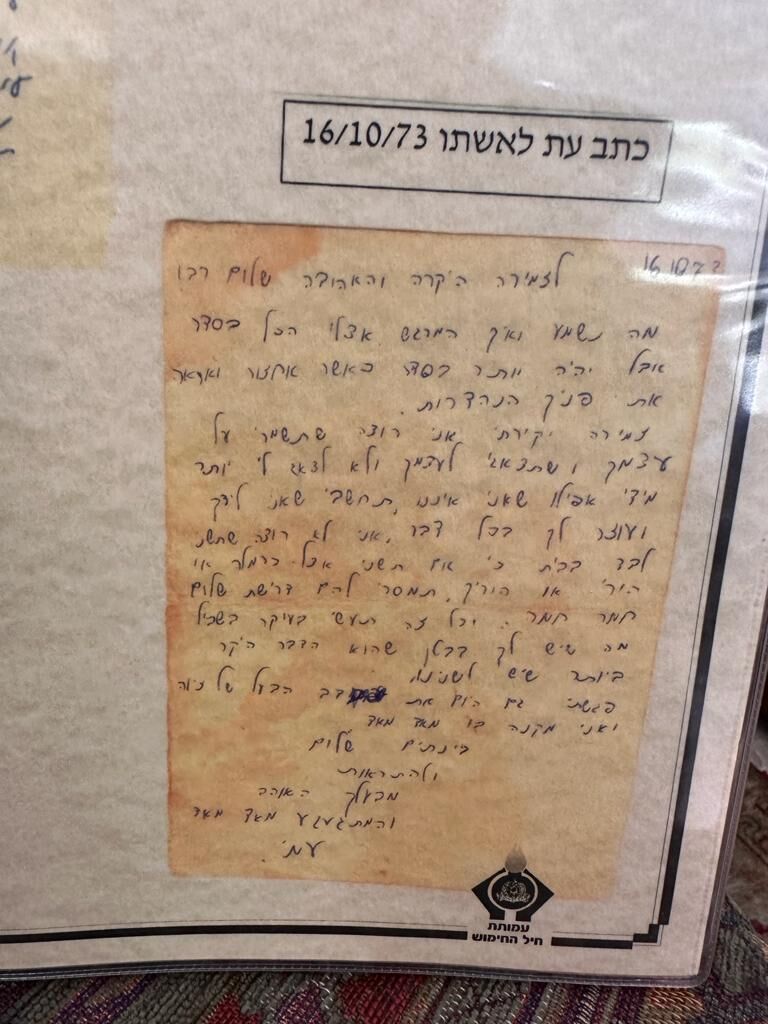 כתב עת לאשתו 16/10/73
לצמירה היקרה והאהובה שלום רבו
מה נשמע ואיך המרגש אצלי הכל בסדר
אבל יהיה יותר בסדר כאשר אחזור ואראה
את פניך הנהדרות.
צמירה יקירתי אני רוצה שתשמרי על
עצמך ושתדאגי לעצמך ולא לדאוג לי יותר
מידי אפילו שאני איננו, תחשבי שאני לידך
ועוזר לך בכל דבר, אני לא רוצה שתשני
לבד בבית כי אם תשני אצל כרמלה או
הורי או הוריך, תמסרי להם דרישת שלום
חמה חמה. וכל זה תעשי בעיקר בשביל
מה שיש לך בבטן שהוא הדבר היקר
ביותר שיש לשנינו.
פגשתי גם היום את דב הבעל של
ואני מקנה בו מאד מאד
בינתיים שלום
ולהתראות
מבעלך האוהב
והמתגעגע מאד מאד
עמותת
חיל החימוש